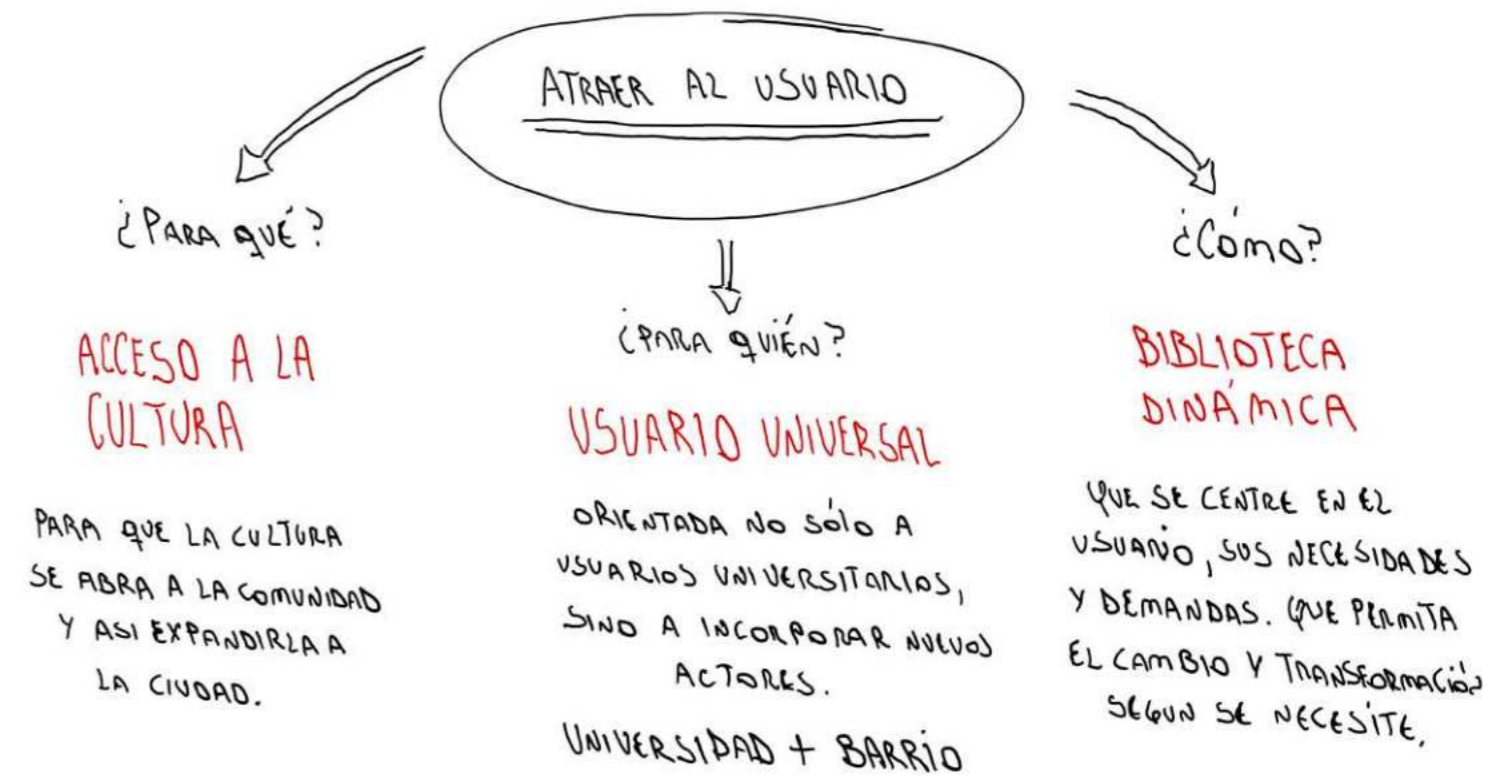 ATRAER AL USUARIO
¿PARA QUÉ?
ACCESO A LA
CULTURA
PARA QUE LA CULTURA
SE ABRA A LA COMUNIDAD
Y ASI EXPANDIRLA A
LA CIUDAD.
¿PARA QUIÉN?
USUARIO UNIVERSAL
ORIENTADA NO SÓLO A
USUARIOS UNIVERSITARIOS,
SINO A INCORPORAR NUEVOS
ACTORES.
UNIVERSIDAD + BARRIO
¿CÓMO?
BIBLIOTECA
DINÁMICA
QUE SE CENTRE EN EL
USUARIO, SUS NECESIDADES
Y DEMANDAS. QUE PERMITA
EL CAMBIO Y TRANSFORMACIÓN
SEGUN SE NECESITE.